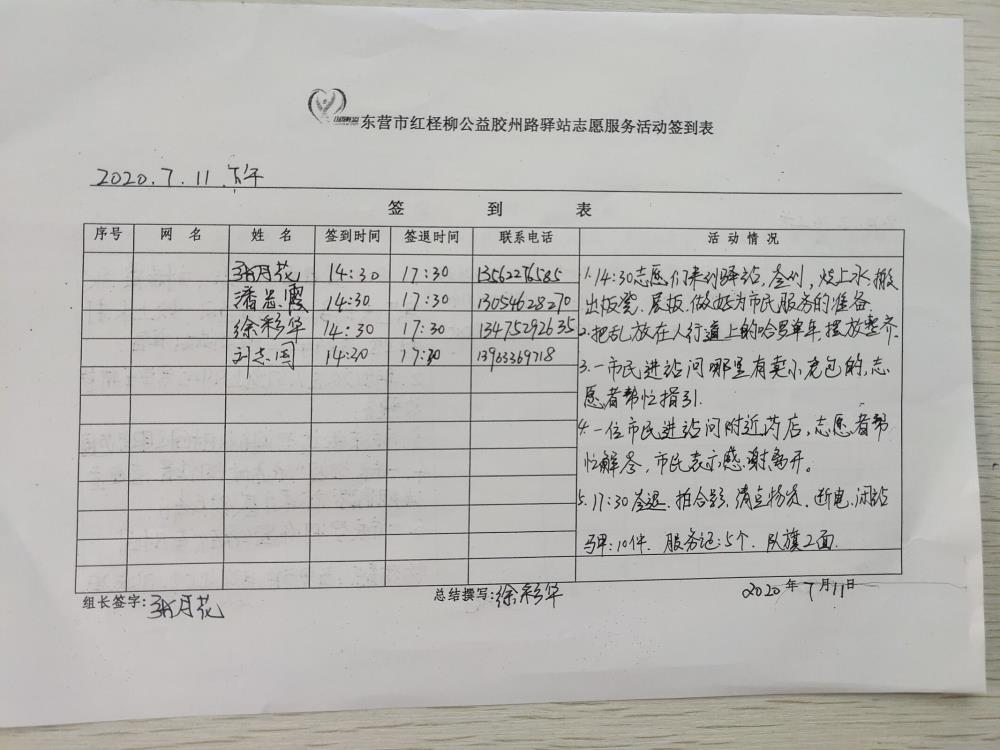 东营市红柽柳公益胶州路驿站志愿服务活动签到表
2020.7.11.下午
签 到 表
序号 网 名 姓 名 签到时间 签退时间 联系电话 活动情况
张月花 14:30 17:30 13562276585
潘总霞 14:30 17:30 13054628270
徐彩华 14:30 17:30 13475292635
刘志国 14:20 17:30 13963369718
1.14:30志愿们来到驿站,签到,烧上水,搬
出版凳、展板.做好为市民服务的准备.
2.把乱放在人行道上的哈罗单车,摆放整齐.
3.一市民进站问哪里有卖小龙包的,志
愿者帮忙指引.
4.一位市民进站问附近药店,志愿者帮
忙解答,市民表示感谢离开。
5.17:30签退.拍合影.清点物资.断电.闭站
马甲:10件.服务记:5个.队旗2面.
组长签字:张月花 总结撰写:徐彩华 2020年7月11日